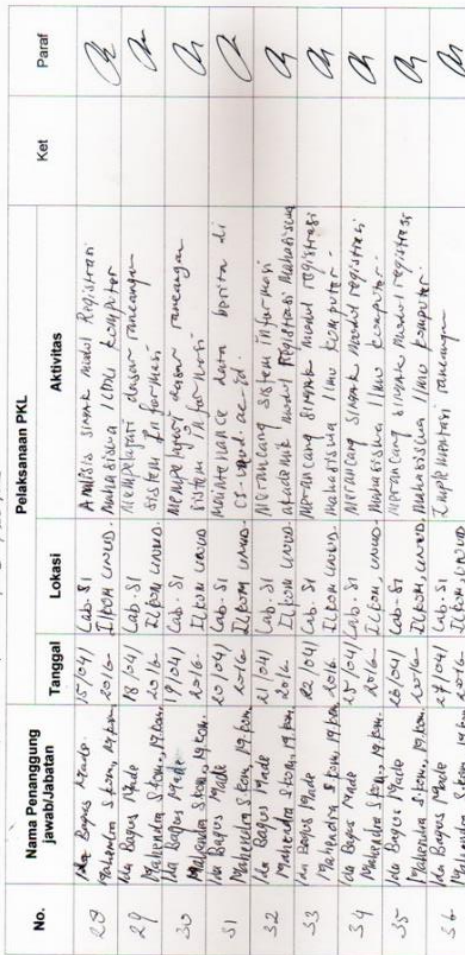 Pelaksanaan PKL
No.
Nama Penanggung
jawab/Jabatan
Tanggal
Lokasi
Aktivitas
Ket
Paraf
28
Ida Bagus Made
Mahendra S.kom., M.kom.
15/04/
2016
Lab. S1
Ilkom UNUD.
Analisis SIMAK Modul Registrasi
Mahasiswa Ilmu Komputer
29
Ida Bagus Made
Mahendra S.kom., M.kom.
18/04/
2016
Lab. S1
Ilkom UNUD.
Mempelajari dasar rancangan
sistem informasi
30
Ida Bagus Made
Mahendra S.kom., M.kom.
19/04/
2016
Lab. S1
Ilkom UNUD
Mempelajari dasar rancangan
sistem informasi
31
Ida Bagus Made
Mahendra S.kom., M.kom.
20/04/
2016
Lab. S1
Ilkom UNUD.
Maintenance data berita di
cs.unud.ac.id.
32
Ida Bagus Made
Mahendra S.kom., M.kom.
21/04/
2016
Lab. S1
Ilkom UNUD.
Merancang sistem informasi
akademik modul Registrasi Mahasiswa
33
Ida Bagus Made
Mahendra S.kom., M.kom.
22/04/
2016
Lab. S1
Ilkom UNUD.
Merancang SIMAK modul registrasi
mahasiswa Ilmu komputer.
34
Ida Bagus Made
Mahendra S.kom., M.kom.
25/04/
2016
Lab. S1
Ilkom, UNUD.
Merancang SIMAK modul registrasi
Mahasiswa Ilmu komputer.
35
Ida Bagus Made
Mahendra S.kom., M.kom.
26/04/
2016
Lab. S1
Ilkom, UNUD.
Merancang SIMAK modul registrasi
Mahasiswa Ilmu komputer.
36
Ida Bagus Made
Mahendra S.kom., M.kom.
27/04/
2016
Lab. S1
Ilkom, UNUD
Implementasi rancangan